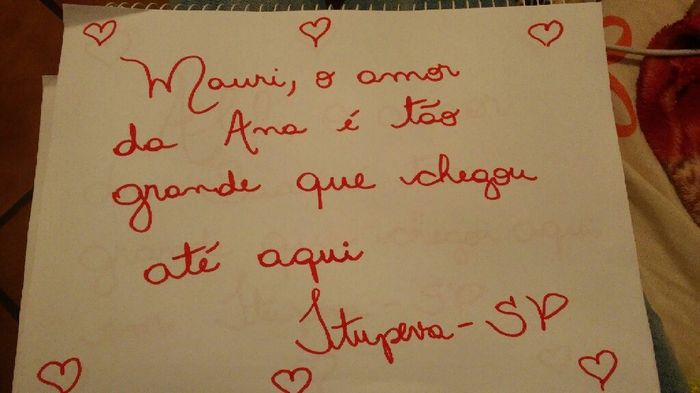 Mauri, o amor
da Ana é tão
grande que chegou
até aqui
Itupeva - SP